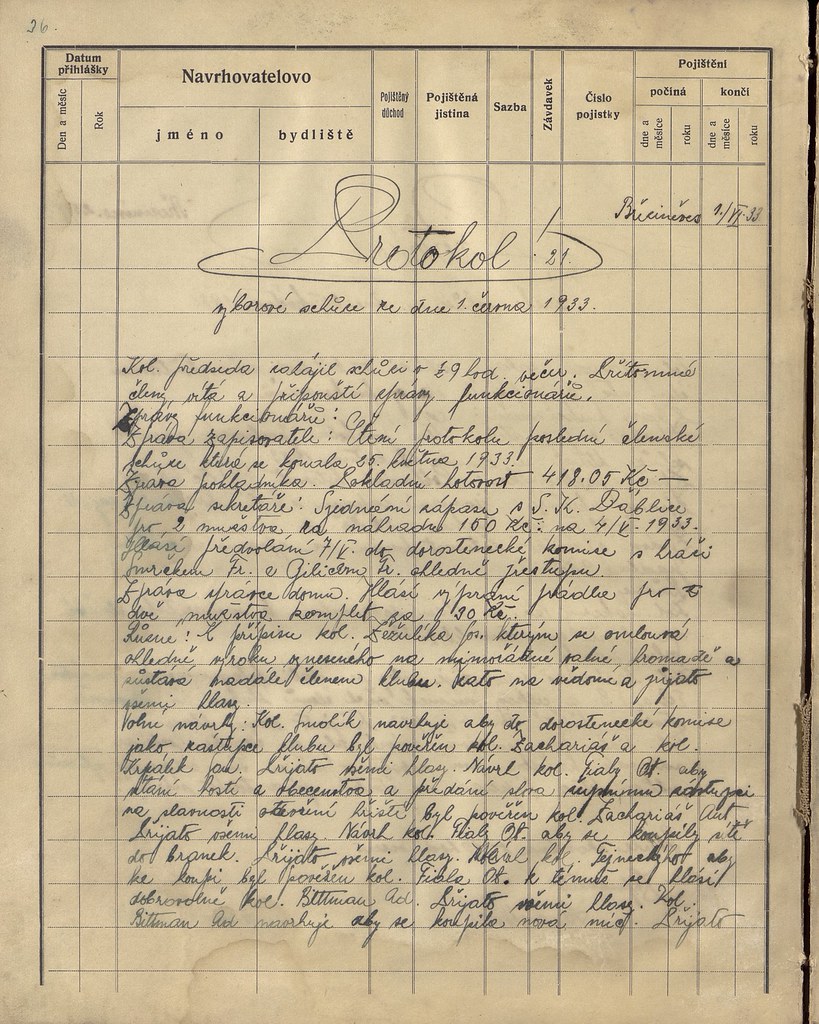 26.
Datum přihlášky
Navrhovatelovo
Pojištěný důchod
Pojištěná jistina
Sazba
Závdavek
Číslo pojistky
Pojištění
počíná
končí
Den a měsíc
Rok
jméno
bydliště
dne a měsíce
roku
dne a měsíce
roku
Březiněves 1./VI. 33
Protokol! 21.
výborové schůze ze dne 1. června 1933.
Kol. předseda zahájil schůzi o ½9 hod. večer. Přítomné
členy vítá a připouští zprávy funkcionářů.
Zprávy funkcionářů:
Zpráva zapisovatele: Čtení protokolu poslední členské
schůze která se konala 25. května 1933.
Zpráva pokladníka. Pokladní hotovost 418.05 Kč —
Zpráva sekretáře: Sjednání zápasu s S. K. Ďáblice
pro 2 mužstva za náhradu 150 Kč. na 4/V. 1933.
Hlásí předvolání 7/V. do dorostenecké komise s hráči
Smrčkem Fr. a Fr. ohledně přestupu.
Zpráva správce domu. Hlásí vyprání prádla pro
dvě mužstva komplet za 20 Kč.
Různé: K přípisu kol. Jos. kterým se omlouvá
ohledně výroku vyneseného na mimořádné valné hromadě a
zůstává nadále členem klubu. vzato na vědomí a přijato
všemi hlasy.
Volné návrhy: Kol. Smolík navrhuje aby do dorostenecké komise
jako zástupce klubu byl pověřen kol. Zachariáš a kol.
Krpálek jun. Přijato všemi hlasy. Návrh kol. Fialy Ot. aby
vítání hostí a obecenstva a předání slova župnímu zástupci
na slavnosti otevření hřiště byl pověřen kol. Zachariáš Ant.
Přijato všemi hlasy. Návrh kol. Fialy Ot. aby se koupily sítě
do branek. Přijato všemi hlasy. Návrh kol. aby
ke koupi byl pověřen kol. Fiala Ot. k témuž se hlásí
dobrovolně kol. Bittman Ad. Přijato všemi hlasy. Kol.
Bittman Ad navrhuje aby se koupila nová míč. Přijato